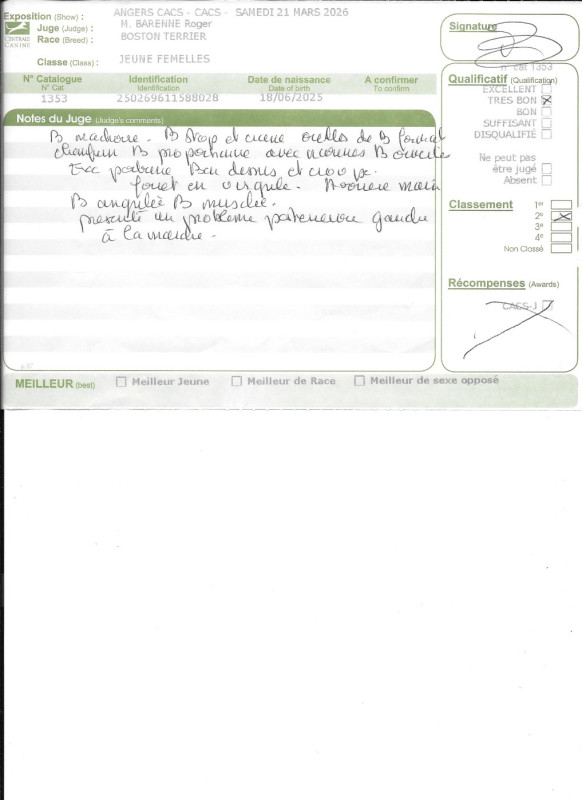 Exposition (Show) : ANGERS CACS - CACS - SAMEDI 21 MARS 2026
Juge (Judge) : M. BARENNE Roger
Race (Breed) : BOSTON TERRIER
CENTRALE CANINE
Classe (Class) : JEUNE FEMELLES
N° Catalogue Identification Date de naissance A confirmer
N° Cat Identification Date of birth To confirm
1353 250269611588028 18/06/2025
Notes du Juge (Judge's comments)
B machoire. B stop et crane oreilles de B format
chanfrein B proportionné avec narines B ouvertes
B en dessus et croupe.
fouet en virgule.
B angulée B musclée.
présente un problème
à la marche.
Signature
n° cat 1353
Qualificatif (Qualification)
EXCELLENT
TRES BON
BON
SUFFISANT
DISQUALIFIÉ
Ne peut pas
être jugé
Absent
Classement
1er
2e
3e
4e
Non Classé
Récompenses (Awards)
CACS-J
MEILLEUR (best) Meilleur Jeune Meilleur de Race Meilleur de sexe opposé